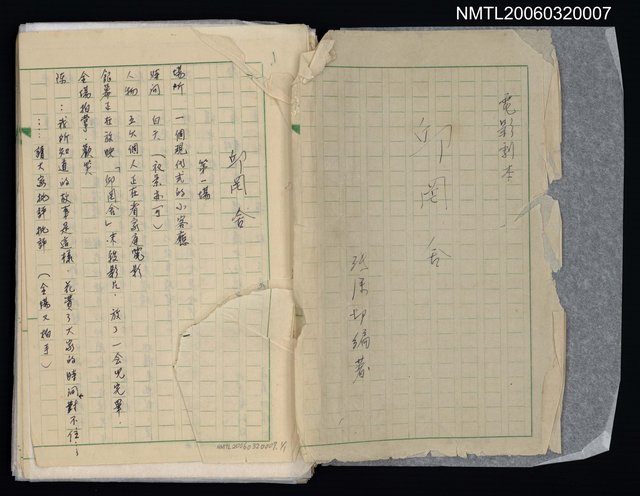 NMTL20060320007
電影劇本
邱罔舍
張深切編著
邱罔舍
第一場
場所 一個現代式的小客廳
時間 白天(夜景亦可)
人物 五六個人正在看家庭電影
銀幕正在放映「邱罔舍」末段影片,放了一會兒完畢,
全場拍掌,歡笑
陳:我所知道的故事是這樣,花費了大家的時間,對不住;
:請大家批評批評(全場又拍手)
NMTL20060320007